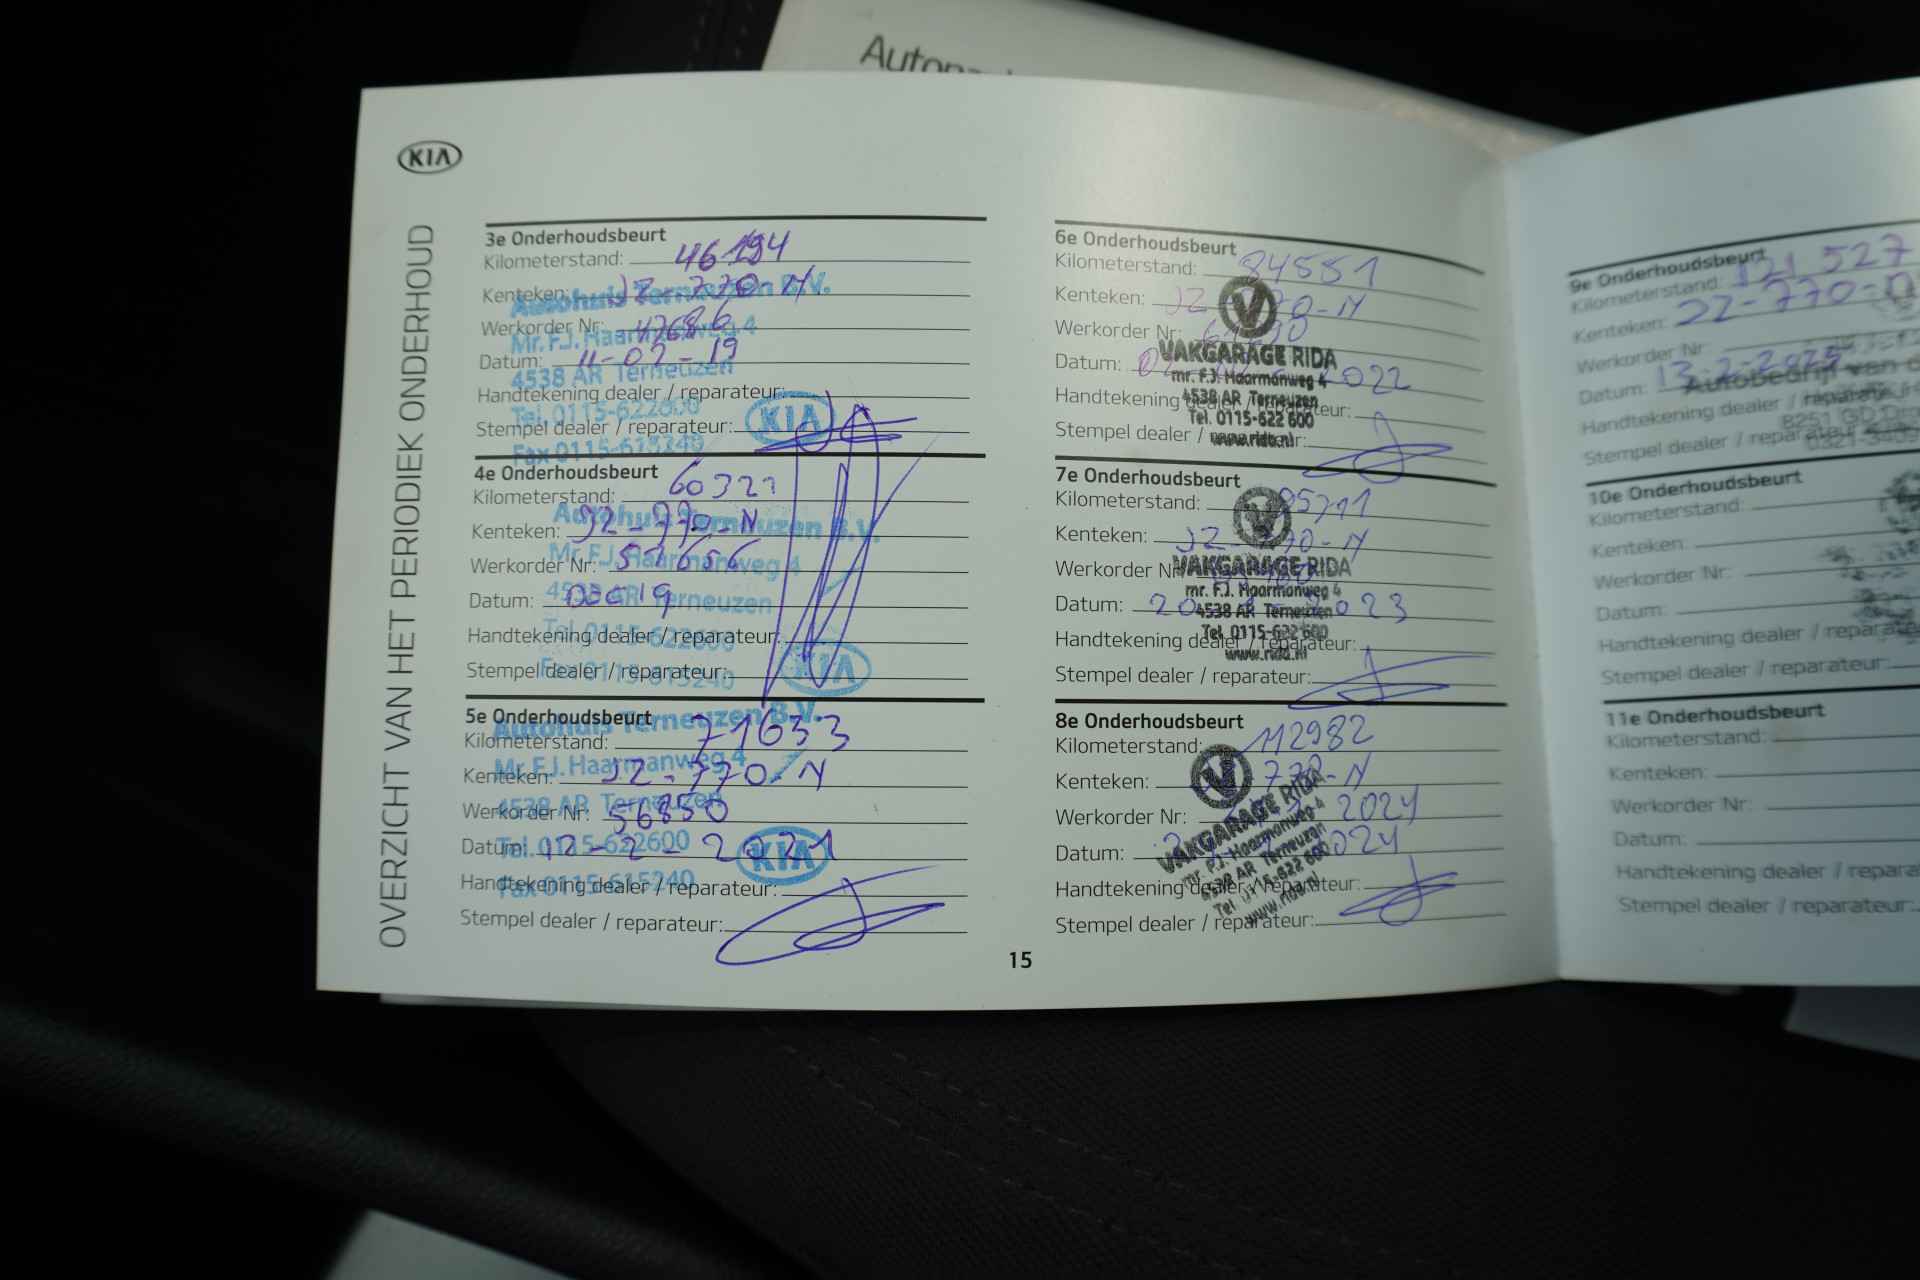 Autopa
KIA
OVERZICHT VAN HET PERIODIEK ONDERHOUD
3e Onderhoudsbeurt
Kilometerstand: 46194
Kenteken: JZ-770-N
Autohuis Terneuzen B.V.
Werkorder Nr: 47686
Mr. F.J. Haarmanweg 4
Datum: 11-02-19
4538 AR Terneuzen
Handtekening dealer / reparateur:
Tel. 0115-622600
KIA
Stempel dealer / reparateur:
Fax 0115-615240
4e Onderhoudsbeurt
Kilometerstand: 60321
Kenteken: JZ-770-N
Autohuis Terneuzen B.V.
Werkorder Nr:
Mr. F.J. Haarmanweg 4
Datum:
4538 AR Terneuzen
Handtekening dealer / reparateur:
Tel. 0115-622600
Stempel dealer / reparateur:
Fax 0115-615240
KIA
5e Onderhoudsbeurt
Autohuis Terneuzen B.V.
Kilometerstand: 71633
Mr. F.J. Haarmanweg 4
Kenteken: JZ-770-N
4538 AR Terneuzen
Werkorder Nr: 56850
Datum: 12-2-2021
Tel. 0115-622600
KIA
Handtekening dealer / reparateur:
Fax 0115-615240
Stempel dealer / reparateur:
6e Onderhoudsbeurt
Kilometerstand: 84551
Kenteken: JZ 70-N
Werkorder Nr:
VAKGARAGE RIDA
Datum: 2022
mr. F.J. Haarmanweg 4
Handtekening dealer / reparateur:
4538 AR Terneuzen
Tel. 0115-622 600
Stempel dealer / reparateur:
www.rida.nl
7e Onderhoudsbeurt
Kilometerstand: 95711
Kenteken: JZ-770-N
Werkorder Nr:
VAKGARAGE RIDA
mr. F.J. Haarmanweg 4
Datum: 20 2023
4538 AR Terneuzen
Tel. 0115-622 600
Handtekening dealer / reparateur:
www.rida.nl
Stempel dealer / reparateur:
8e Onderhoudsbeurt
Kilometerstand: 112982
Kenteken: 770-N
Werkorder Nr: 2024
VAKGARAGE RIDA
Datum: 2024
mr. F.J. Haarmanweg 4
4538 AR Terneuzen
Handtekening dealer / reparateur:
Tel. 0115-622 600
www.rida.nl
Stempel dealer / reparateur:
15
9e Onderhoudsbeurt
Kilometerstand: 121527
Kenteken: 22-770-
Werkorder Nr:
Datum: 13-2-2025
Autobedrijf van d
Handtekening dealer / reparateur
8251 GD Dro
Stempel dealer / reparateur
0321-
10e Onderhoudsbeurt
Kilometerstand:
Kenteken:
Werkorder Nr:
Datum:
Handtekening dealer / reparate
Stempel dealer / reparateur:
11e Onderhoudsbeurt
Kilometerstand:
Kenteken:
Werkorder Nr:
Datum:
Handtekening dealer / repara
Stempel dealer / reparateur: